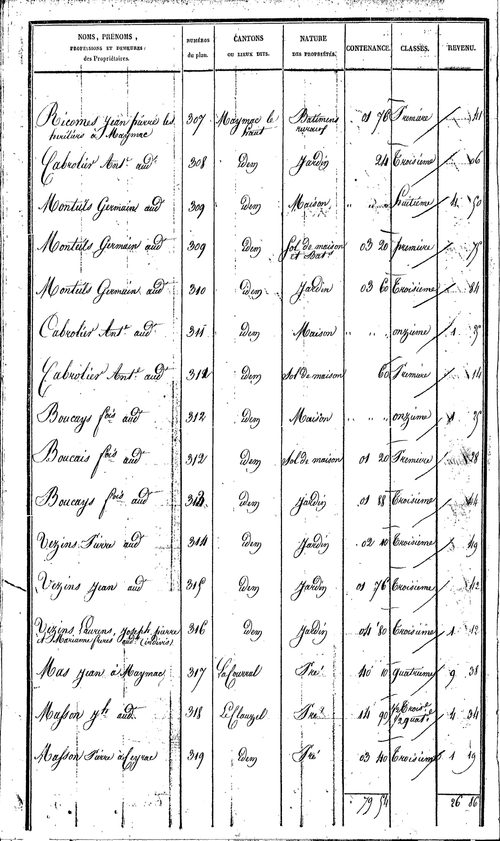 NOMS, PRÉNOMS, PROFESSIONS ET DEMEURES des Propriétaires. NUMÉROS du plan. CANTONS OU LIEUX DITS. NATURE DES PROPRIÉTÉS. CONTENANCE. CLASSES. REVENU.
Ricomes Jean pierre les héritiers à Maymac 307 Maymac le haut Batimens ruraux 01 78 Première 41
Cabrolier Ant.e aud.t 308 idem Jardin 24 Troisième 06
Monteils Germain aud.t 309 idem Maison " " huitième 4 50
Monteils Germain aud.t 309 idem Sol de maison et Bat.s 03 20 première 75
Monteils Germain aud.t 310 idem Jardin 03 60 Troisième 84
Cabrolier Ant.e aud.t 311 idem Maison " " onzième 1 35
Cabrolier Ant.e aud.t 312 idem Sol de maison 60 Première 14
Boucays f.ois aud.t 312 idem Maison " " onzième 1 35
Boucais f.ois aud.t 312 idem Sol de maison 01 20 Première 28
Boucays f.ois aud.t 313 idem Jardin 01 88 Troisième 44
Vezins Pierre aud.t 314 idem Jardin 02 10 Troisième 49
Vezins Jean aud.t 315 idem Jardin 01 76 Troisième 42
Vezins Laurens, Joseph, pierre et Marianne frères aud.t 316 idem Jardin 04 80 Troisième 1 12
Mas Jean à Maymac 317 La Courral Pré 40 10 quatrième 9 31
Masson J.h aud.t 318 Le Clauzel Pré 14 90 1/2 Trois.e 1/2 quat.e 4 34
Masson Pierre à Ceyrac 319 idem Pré 03 40 Troisième 1 19
79 54 26 86